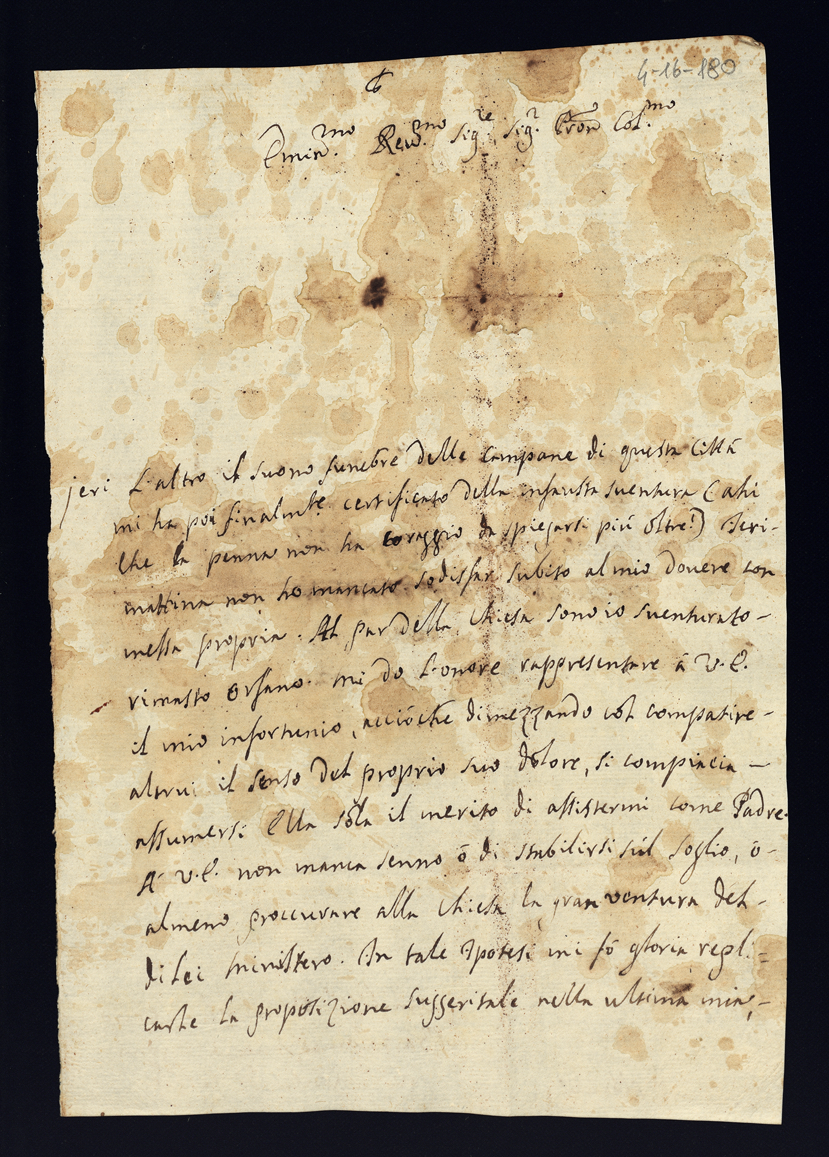 4-16-180
Emin.mo Rev.mo Sig.re Sig.r Pron Col.mo
jeri L'altro il suono funebre delle campane di questa Città
mi ha poi finalmte certificato della infausta sventura (ahi
che la penna non ha coraggio da spiegarsi più oltre!) Jeri-
mattina non ho mancato sodisfar subito al mio dovere con
messa propria. Al par della Chiesa sono io sventurato-
rimasto orfano. mi do l'onore rappresentare à V.E.
il mio infortunio, acciòche dimezzando col compatire-
altrui il senso del proprio suo dolore, si compiacia-
assumersi Ella sola il merito di assistermi come Padre.
A' V.E. non manca senno ò di stabilirsi sul soglio, ò-
almeno proccurare alla Chiesa la gran ventura del-
di Lei ministero. In tale Ipotesi mi fò gloria repli=
carle la proposizione suggeritale nella ultima mia,-